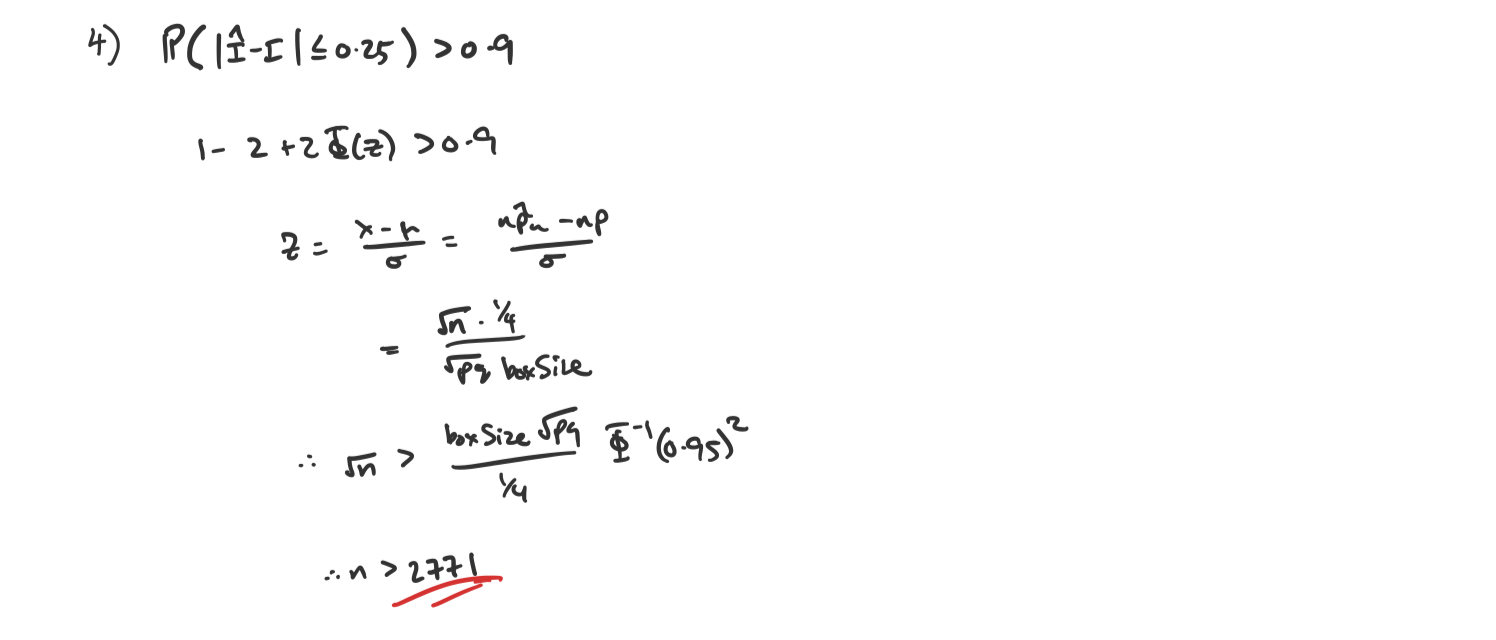 4) P(|Î-I|≤0.25) >0.9
1- 2 +2Φ(z) >0.9
z = (x-μ)/σ = (np̂ₙ -np)/σ
= (√n · 1/4)/(√pq boxSize)
∴ √n > (boxSize √pq)/(1/4) Φ⁻¹(0.95)²
∴ n > 2771